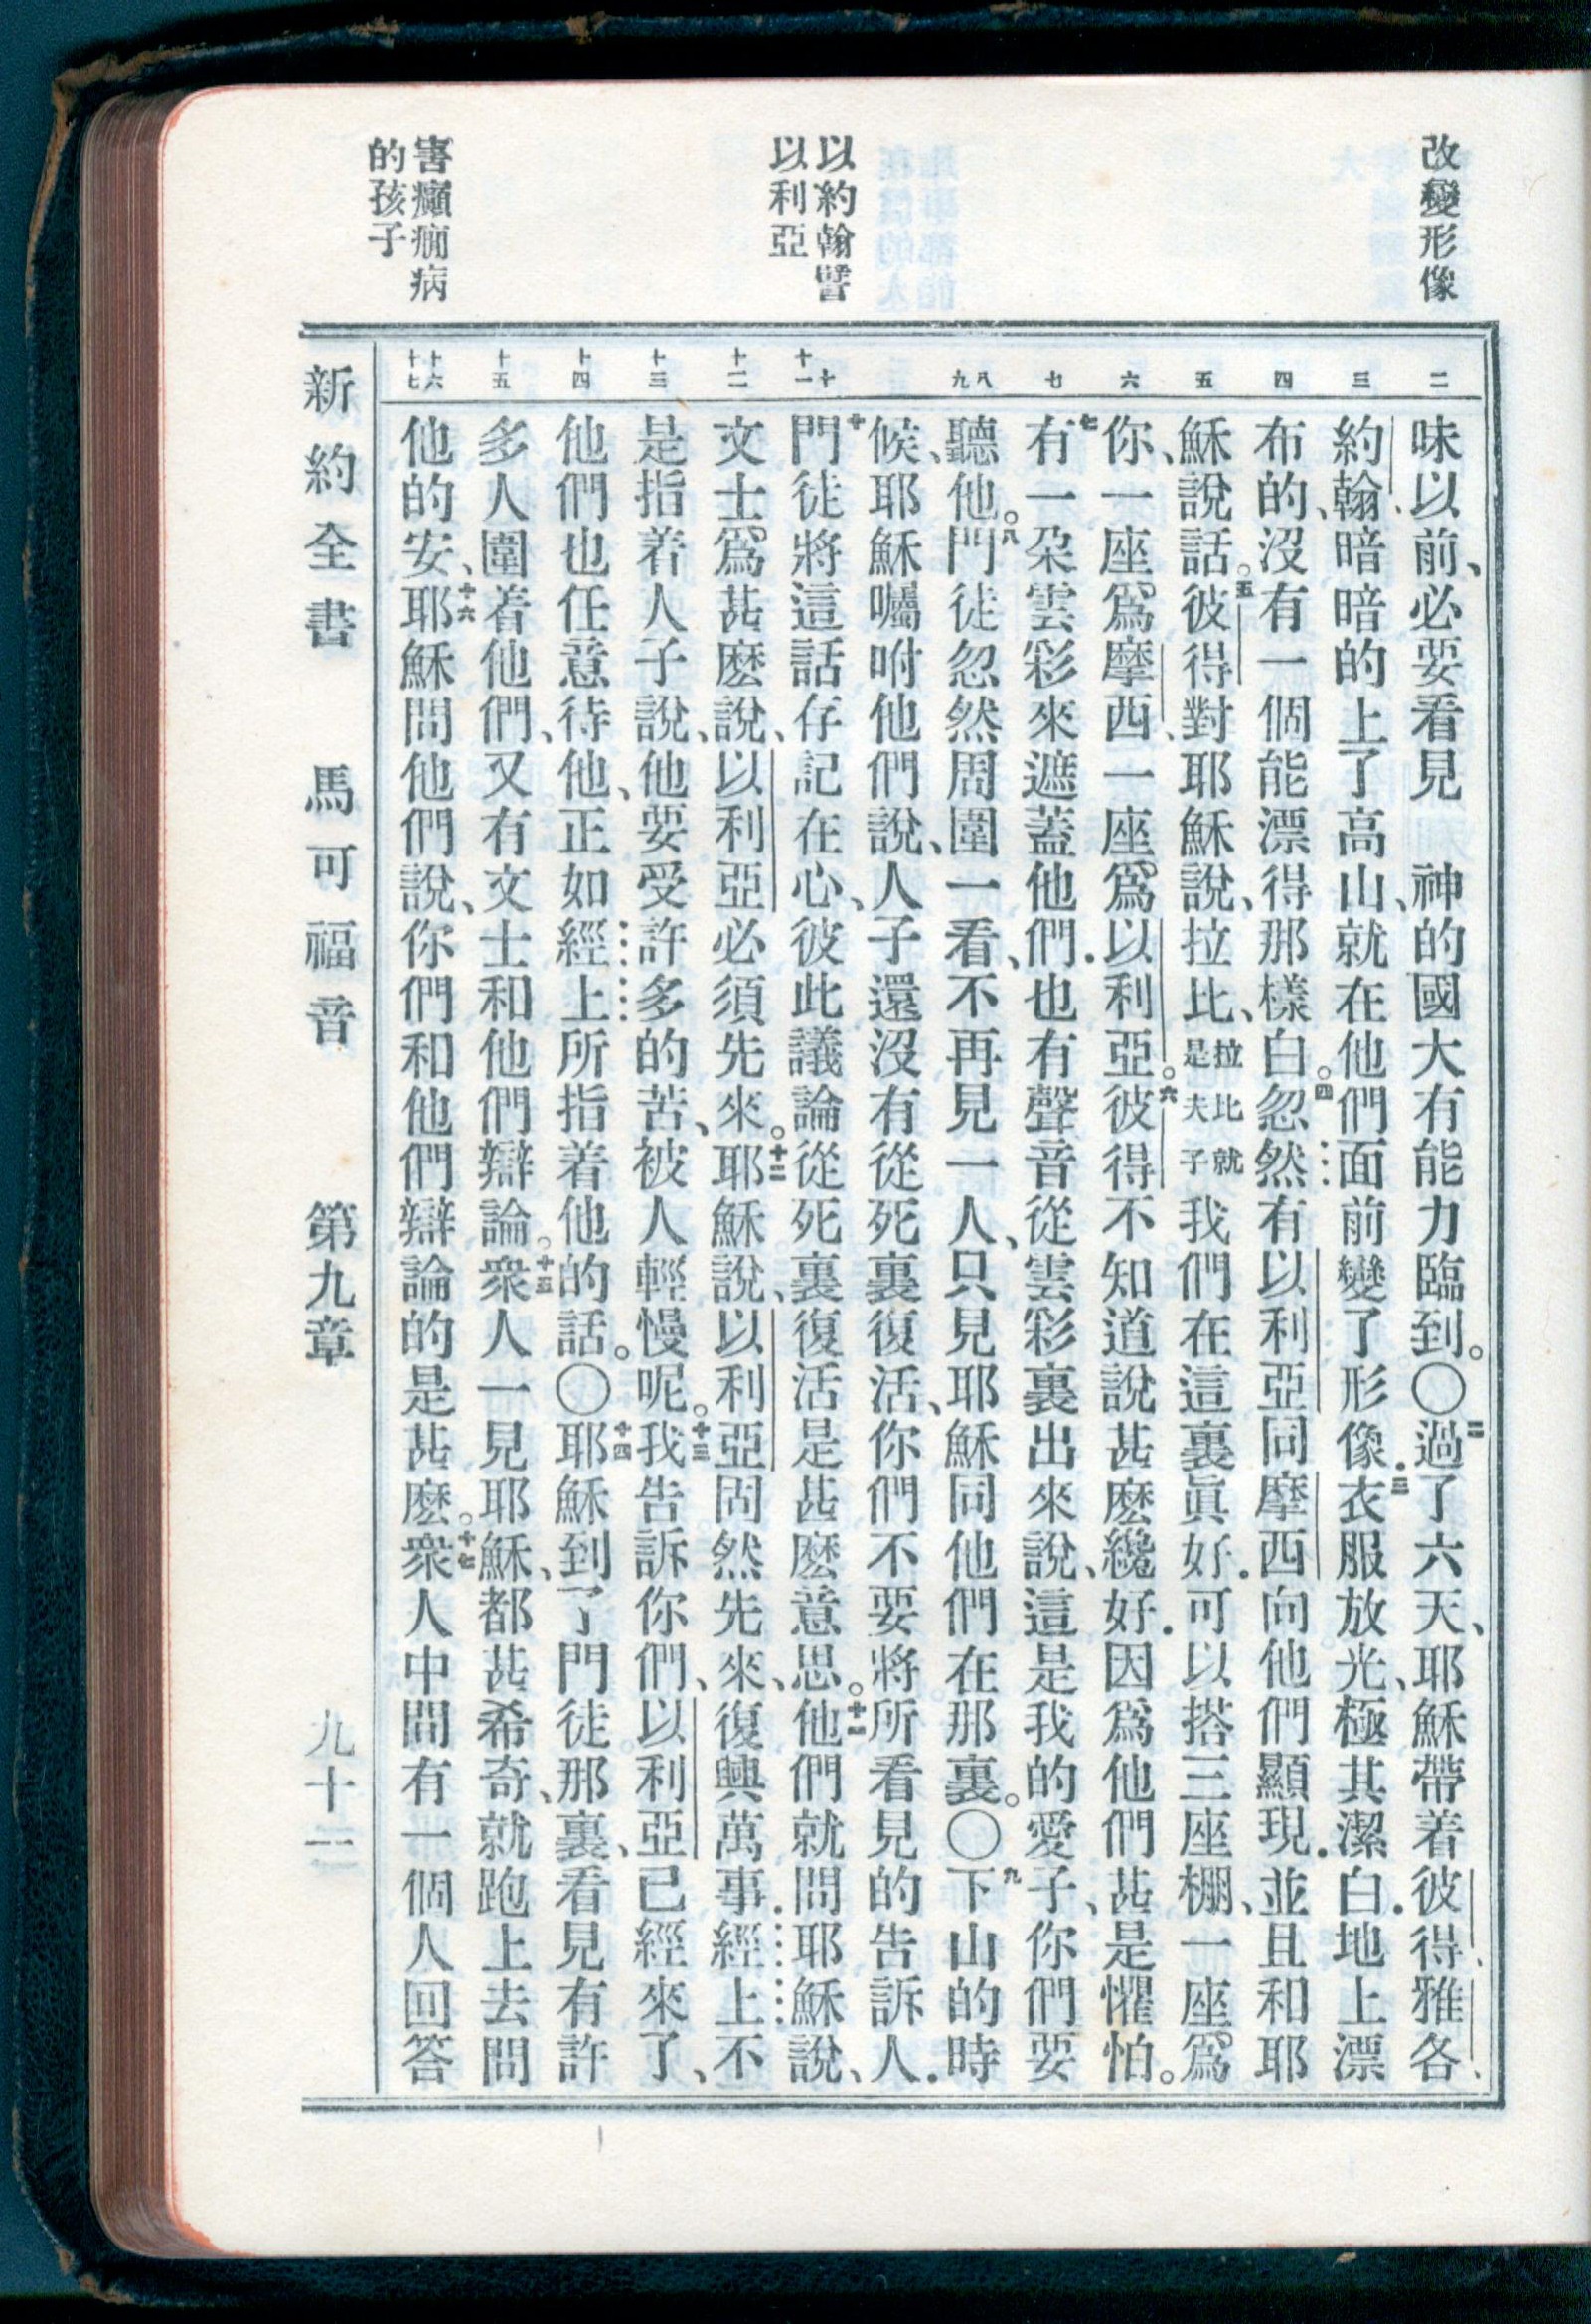 改變形像
以約翰譬
以利亞
害癲癇病
的孩子
二
三
四
五
六
七
八
九
十
十一
十二
十三
十四
十五
十六
十七
味以前、必要看見　神的國大有能力臨到。〇二過了六天、耶穌帶着彼得、雅各、
約翰、暗暗的上了高山、就在他們面前變了形像．三衣服放光、極其潔白．地上漂
布的、沒有一個能漂得那樣白。四忽然有以利亞同摩西向他們顯現．並且和耶
穌說話。五彼得對耶穌說、拉比、拉比就是夫子我們在這裏眞好．可以搭三座棚、一座爲
你、一座爲摩西、一座爲以利亞。六彼得不知道說甚麽纔好．因爲他們甚是懼怕。
七有一朶雲彩來遮蓋他們．也有聲音從雲彩裏出來說、這是我的愛子、你們要
聽他。八門徒忽然周圍一看、不再見一人、只見耶穌同他們在那裏。〇九下山的時
候、耶穌囑咐他們說、人子還沒有從死裏復活、你們不要將所看見的告訴人．
十門徒將這話存記在心、彼此議論從死裏復活是甚麽意思。十一他們就問耶穌說、
文士爲甚麽說、以利亞必須先來。十二耶穌說、以利亞固然先來、復興萬事．經上不
是指着人子說、他要受許多的苦、被人輕慢呢。十三我告訴你們、以利亞已經來了、
他們也任意待他、正如經上所指着他的話。〇十四耶穌到了門徒那裏、看見有許
多人圍着他們、又有文士和他們辯論。十五衆人一見耶穌、都甚希奇、就跑上去問
他的安、十六耶穌問他們說、你們和他們辯論的是甚麽。十七衆人中間有一個人回答
新約全書　馬可福音　第九章　九十一